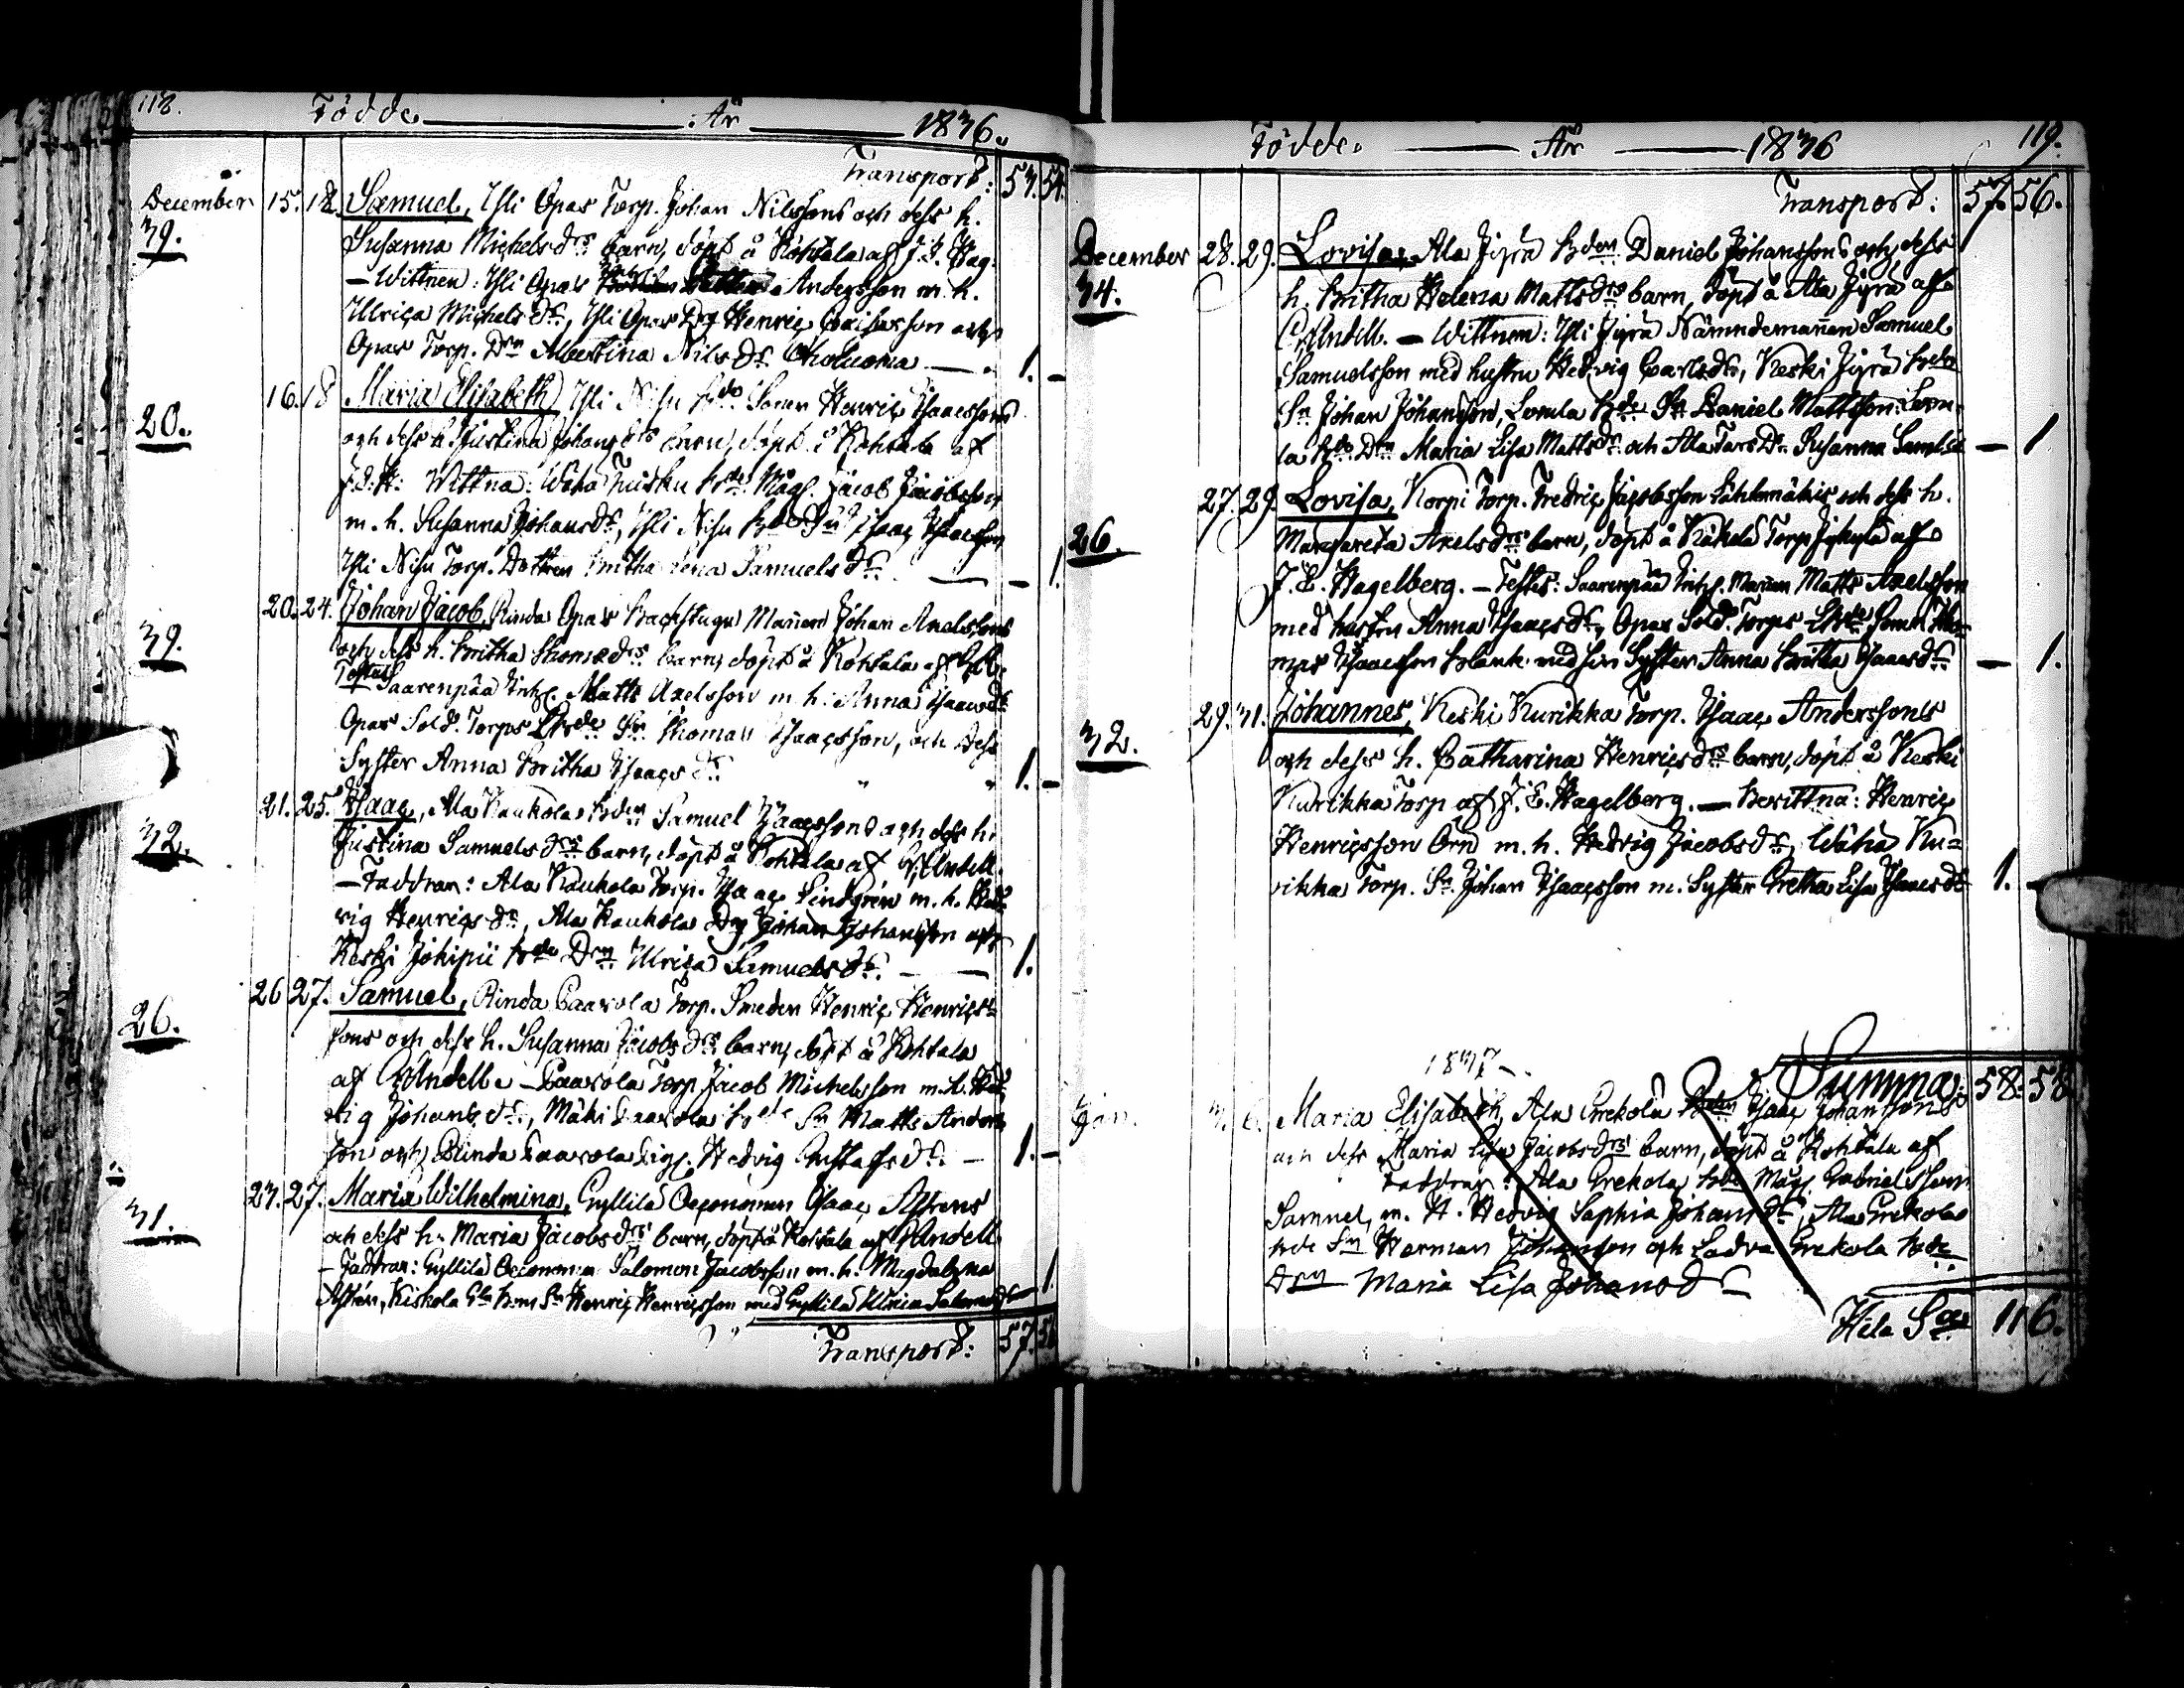 118. Födde År 1836.
Transport: 53. 54.
December 15. 18. Samuel, Yli Opas Torp. Johan Nilssons och dess h.
39. Susanna Michelsdrs barn, döpt å Kohtala af J. E. Hag.
— Wittnen: Yli Opas Andersson m. h.
Ulrica Michelsdr, Yli Opas Drg Henric och
Opas Torp. Drn Albertina Nilsdr — 1. –
16. 18 Maria Elisabeth, Yli Nisu Bde Sonen Henric Isaacssons
20. och dess h. Justina Johansdrs barn, döpt å Kohtala af
J. E. H: Wittna: Wähä Bde Måg. Jacob Jacobsson
m. h. Susanna Johansdr, Yli Nisu Bde Sn Isaac Isaacsson
Yli Nisu Torp. Dottren Britha Lena Samuelsdr. — – 1.
20. 24. Johan Jacob, Rinda Opas Backstugu Mannen Johan Axelssons
39. och dess h. Britha Thomædrs barn, döpt å Kohtala af
Testes Saarenpää Inh. Matts Axelsson m. h. Anna Isaacsdr
Opas Sold. Torps Sn Thomas Isaacsson, och dess
Syster Anna Britha Isaacsdr " " 1. –
21. 25. Isaac, Ala Kaukola Bden Samuel Isaacssons och dess h.
32. Justina Samuelsdrs barn, döpt å Kohtala af C. Undell.
— Faddrar: Ala Kaukola Torp. Isaac Lindgrén m. h. Hed-
vig Henricsdr, Ala Kaukola Drg Johan Johansson och
Keski Jokipii Bde Drn Ulrica Samuelsdr. — — 1.
26 27. Samuel, Rinda Paavola Torp. Smeden Henric Henrics-
26. sons och dess h. Susanna Jacobsdrs barn, döpt å Kohtala
af C. Undell. — Paavola Torp Jacob Michelsson m. h. Hed-
vig Johansdr, Mäki Paavola Bde Sn Matts Anders-
son och Rinda Paavola Hedvig Gustafsdr. – 1. –
23. 27. Maria Wilhelmina, Gyllilä Oeconomen Isaac Astrens
31. och dess h. Maria Jacobsdrs barn, döpt å Kohtala af C. Undell.
— Faddrar: Gyllilä Oeconomen Salomon Jacobsson m. h. Magdalena
Astrén, Kiskola Sn Henric Henricsson med Gyllilä Ulrica 1
Transport: 57. 56
Födde. — År — 1836 119.
Transport: 57. 56.
December 28. 29. Lovisa, Ala Jyrä Bden Daniel Johanssons och dess
34. h. Britha Helena Mattsdrs barn, döpt å Ala Jyrä af
C. Undell. — Wittnen: Yli Jyrä Nämndemannen Samuel
Samuelsson med hustru Hedvig Carlsdr, Keski Jyrä Bde
Sn Johan Johansson, Bde Sn Daniel Mattsson:
la Bde Drn Maria Lisa Mattsdr och Ala Susanna — 1
27. 29. Lovisa, Korpi Torp. Fredric Jacobsson och dess h.
26. Margareta Axelsdrs barn, döpt å Torp af
J. E. Hagelberg. — Testes: Saarenpää Inh. Mannen Matts Axelsson
med hustru Anna Isaacsdr, Opas Sold. Torps Sonen Tho-
mas Isaacsson Blank med sin Syster Anna Britha Isaacsdr — 1.
29. 31. Johannes, Keski Kurikka Torp. Isaac Anderssons
32. och dess h. Catharina Henricsdrs barn, döpt å Keski
Kurikka Torp af J. E. Hagelberg. — Bevittna: Henric
Henricsson Örn m. h. Hedvig Jacobsdr, Wähä Ku-
rikka Torp. Sn Johan Isaacsson m. Syster Gretha Lisa Isaacsdr 1. –
Summa: 58. 58
1837
Jan. 3. 6. Maria Elisabeth, Ala Grekola Bden Isaac Johanssons
och dess Maria Lisa Jacobsdrs barn, döpt å Kohtala af
Faddrar: Ala Grekola Bde Måg. Gabriel
Samuel, m. H. Hedvig Sophia Johansdr, Ala Grekola
Bde Sn Herman Johansson och Ladva Grekola Bde
Drn Maria Lisa Johansdr
Hela Sa 116.